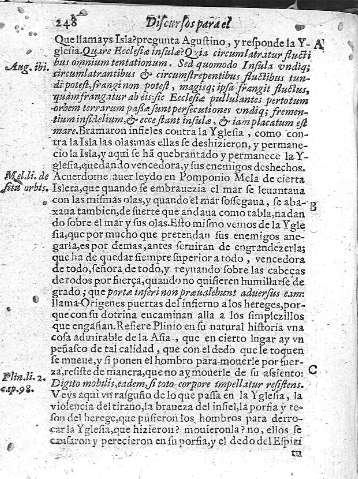 248
Discursos para el
Que llamays Isla? pregunta Agustino, y responde la Y-
glesia. Quare Ecclesiæ insulæ? Quia circumlatratur flucti
bus omnium tentationum. Sed quomodo Insula vndiq;
circumlatrantibus & circumstrepentibus fluctibus tun-
di potest, frangi non potest, magisq; ipsa frangit fluctus,
quam frangatur ab eis: sic Ecclesiæ pullulantes per totum
orbem terrarum passæ sunt persecutiones vndiq; fremen-
tium infidelium, & ecce stant insulæ, & iam placatum est
mare. Bramaron infieles contra la Yglesia, como con-
tra la Isla las olas: mas ellas se deshizieron, y permane-
cio la Isla, y aqui se ha quebrantado y permanece la Y-
glesia, quedando vencedora, y sus enemigos deshechos.
Acuerdome auer leydo en Pomponio Mela de cierta
Isleta, que quando se embrauezia el mar se leuantaua
con las mismas olas, y quando el mar sossegaua, se aba-
xaua tambien, de suerte que andaua como tabla, nadan
do sobre el mar y sus olas. Esto mismo vemos de la Ygle
sia, que por mucho que pretendan sus enemigos ane-
garla, es por demas, antes seruiran de engrandezerla;
que ha de quedar siempre superior a todo, vencedora
de todo, señora de todo, y reynando sobre las cabeças
de todos por fuerça, quando no quisieren humillarse de
grado; que portæ inferi non præualebunt aduersus eam:
llama Origenes puertas del infierno a los hereges, por-
que con su dotrina encaminan alla a los simplezillos
que engañan. Refiere Plinio en su natural historia vna
cosa admirable de la Asia, que en cierto lugar ay vn
peñasco de tal calidad, que con el dedo que le toquen
se mueue, y si ponen el hombro para mouerle por fuer-
za, resiste de manera, que no ay mouerle de su asiento:
Digito mobilis, eadem, si toto corpore impellatur resistens.
Veys aqui vn rasguño de lo que passa en la Yglesia, la
violencia del tirano, la braueza del infiel, la porfia y te-
son del herege, que pusieron los hombros para derro-
car la Yglesia, que hizieron? mouieronla? no, ellos se
cansaron y perecieron en su porfia, y el dedo del Espiri
tu
Aug. ibi.
Mel. li. de
situ orbis.
Plin. li. 2.
cap. 98.
A
B
C